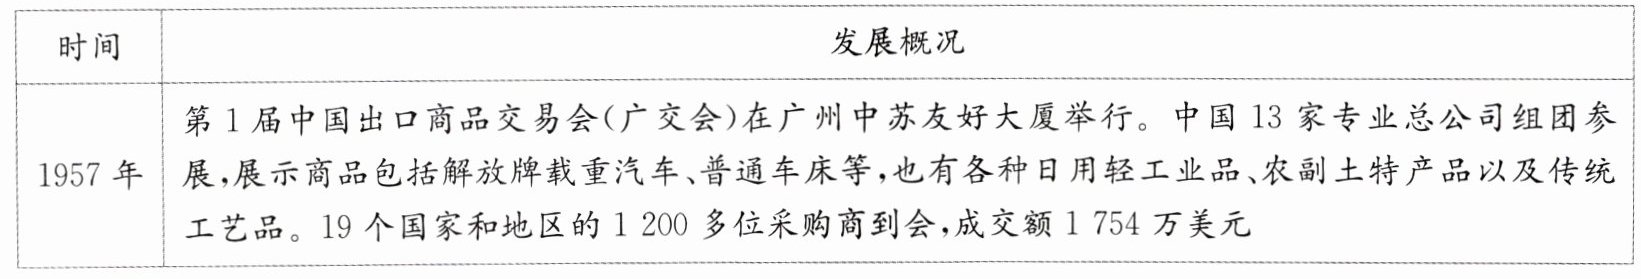 时间 发展概况
第1届中国出口商品交易会(广交会)在广州中苏友好大厦举行。中国13家专业总公司组团参
1957年 展,展示商品包括解放牌载重汽车、普通车床等,也有各种日用轻工业品、农副土特产品以及传统
工艺品。19个国家和地区的1 200多位采购商到会,成交额1 754万美元